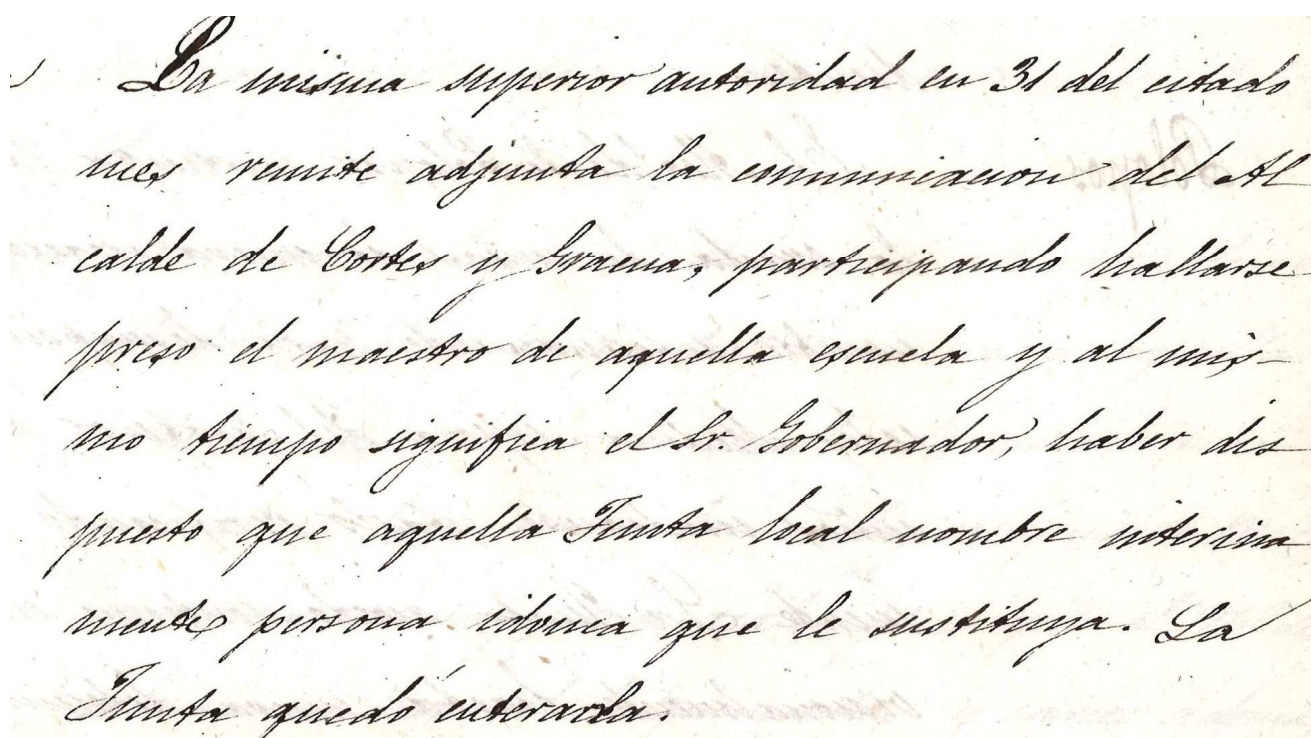 La misma superior autoridad en 31 del citado
mes remite adjunta la comunicacion del Al
calde de Cortes y Graena, participando hallarse
preso el maestro de aquella escuela y al mis-
mo tiempo significa el Sr. Gobernador, haber dis
puesto que aquella Junta local nombre interina
mente persona idonea que le sustituya. La
Junta quedó enterada.